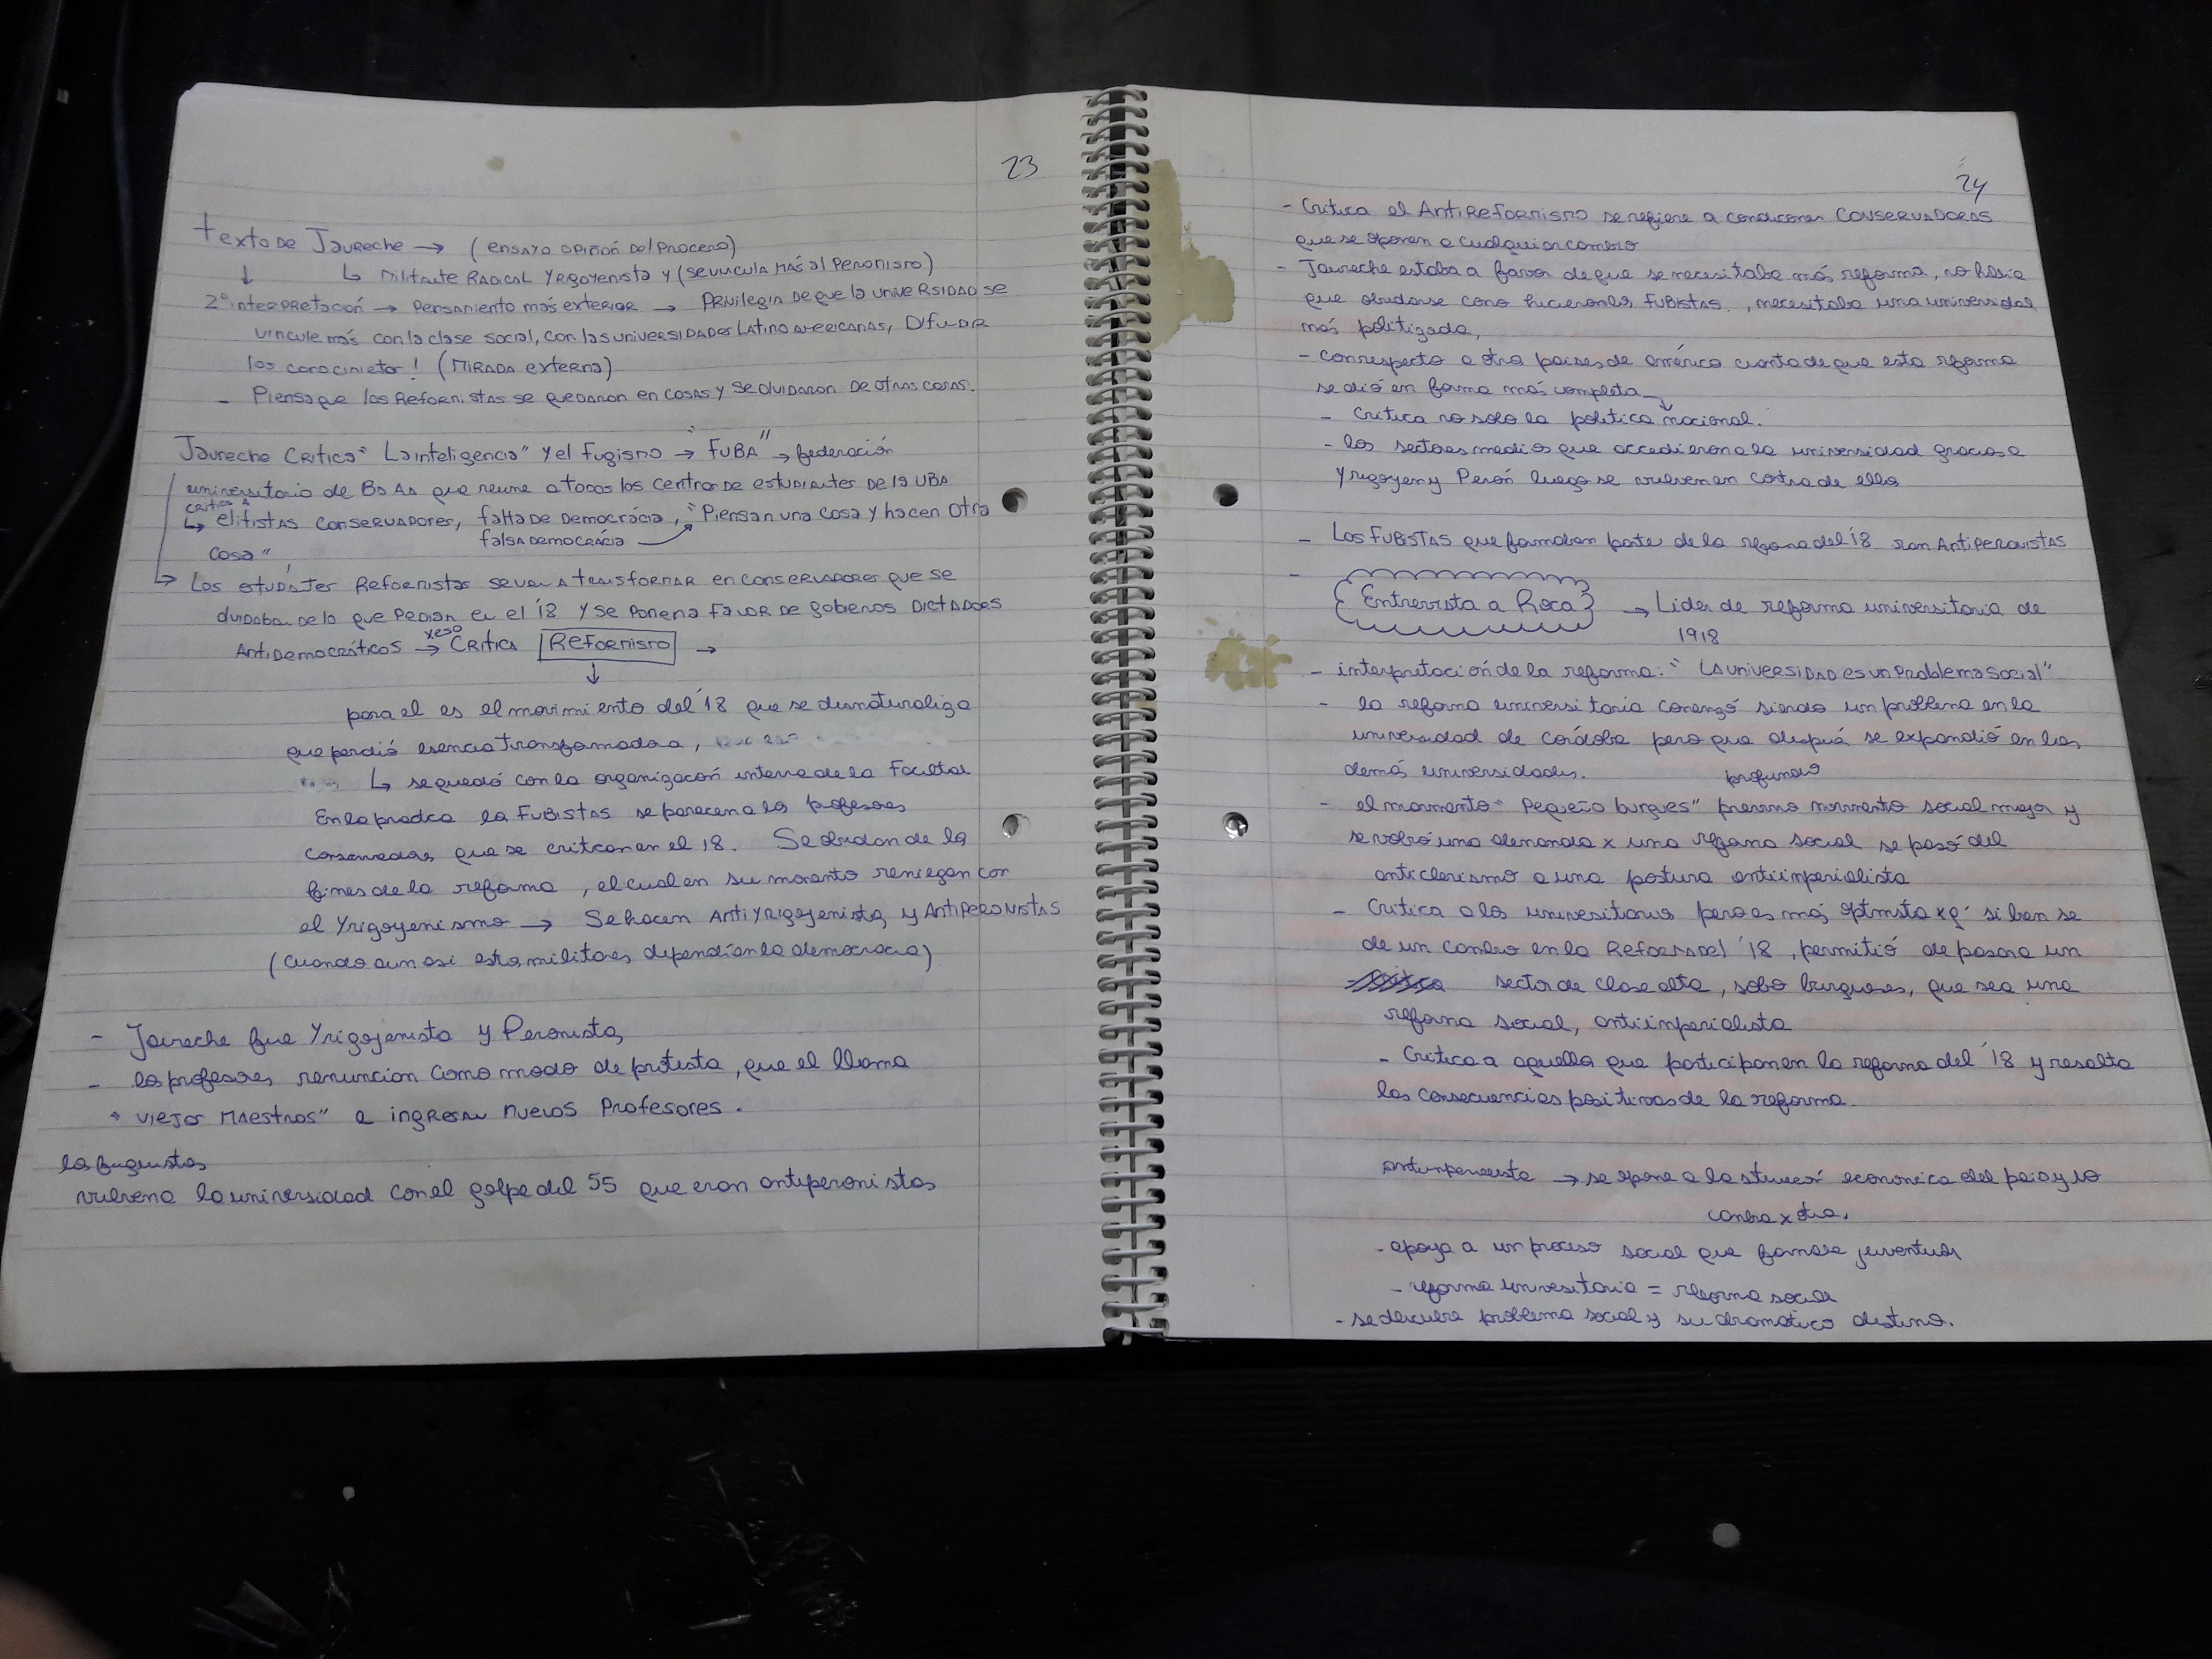 23
texto DE JAURECHE → (ENSAYO OPINIÓN DEl PROCESO)
↓ ↳ MILITANTE RADICAL YRIGOYENISTA Y (SE VINCULA MÁS al PERONISMO)
2° INTERPRETACIÓN → PENSAMIENTO MÁS EXTERIOR → PRIVILEGIA DE QUE la UNIVERSIDAD SE
VINCULE MÁS CON la CLASE SOCIAL, CON las UNIVERSIDADES LATINO AMERICANAS, DIFUNDIR
los conocimietos! (MIRADA EXTERNA)
- PIENSA QUE los REFORMISTAS SE QUEDARON EN COSAS Y SE OLVIDARON DE OTRAS COSAS.
JAURECHE CRITICA "La inteligencia" y el Fugismo → "FUBA" → federación
universitaria de Bs As que reune a todos los CENTROS DE ESTUDIANTES DE la UBA
critica a
↳ ELITISTAS CONSERVADORES, falta DE DEMOCRÁCIA, "PIENSAN UNA COSA Y HACEN OTRA
falsa DEMOCRÁCIA
COSA"
↳ Los ESTUDIANTES REFORMISTAS SE VAN A TRANSFORMAR EN CONSERVADORES QUE SE
olvidaban DE lo QUE PEDIAN EN EL '18 Y SE PONEN A FAVOR DE GOBIERNOS DICTADORES
xeso
ANTIDEMOCRÁTICOS → CRITICA REFORMISMO →
↓
para el es el movimiento del '18 que se desnaturaliza
que perdió esencia transformadora,
↳ se quedó con la organización interna de la Facultad
En la practica los FUBISTAS se parecen a los profesores
conservadores que se critican en el 18. Se olvidan de los
fines de la reforma, el cual en su momento reniegan con
el Yrigoyenismo → Se hacen ANTIYRIGOYENISTAS y ANTIPERONISTAS
(cuando aun asi estos militares defendían la democracia)
- Jaureche fue Yrigoyenista y Peronista
- los profesores renuncian como modo de protesta, que el llama
"VIEJOS MAESTROS" e INGRESAN NUEVOS PROFESORES.
los fugistas
vuelven a la universidad con el golpe del 55 que eran antiperonistas
24
- Critica el ANTIREFORMISMO se refiere a condiciones CONSERVADORAS
que se oponen a cualquier cambio
- Jaureche estaba a favor de que se necesitaba más reforma, no había
que olvidarse como hicieron los FUBISTAS, necesitaba una universidad
más politizada,
- con respecto a otros paises de américa cuenta de que esta reforma
se dió en forma más completa
- Critica no solo la politica nacional.
- los sectores medios que accedieron a la universidad gracias a
Yrigoyen y Perón luego se vuelven en contra de ellos
- LOS FUBISTAS que formaban parte de la reforma del '18 son ANTIPERONISTAS
-
Entrevista a Roca → Lider de reforma universitaria de
1918
- interpretación de la reforma: "LA UNIVERSIDAD ES UN PROBLEMA SOCIAL"
- la reforma universitaria comenzó siendo un problema en la
universidad de córdoba pero que después se expandió en las
demás universidades.
profundo
- el movimento "Pequeño burgues" movimento social mayor y
se volvió una demanda x una reforma social se pasó del
anticlerismo a una postura antiimperialista
- Critica a los universitarios pero es más optimista xq' si bien se
de un cambio en la REFORMA DEl '18, permitió de pasar a un
sector de clase alta, solo burgueses, que sea una
reforma social, antiimperialista
- Critica a aquellos que participon en la reforma del '18 y resalta
las consecuencias positivas de la reforma.
antiimperialista → se opone a la situación económica del pais y no
cambia x otra.
- apoya a un proceso social que formara juventud
- reforma universitaria = reforma social
- se descubre problema social y su dramatico destino.